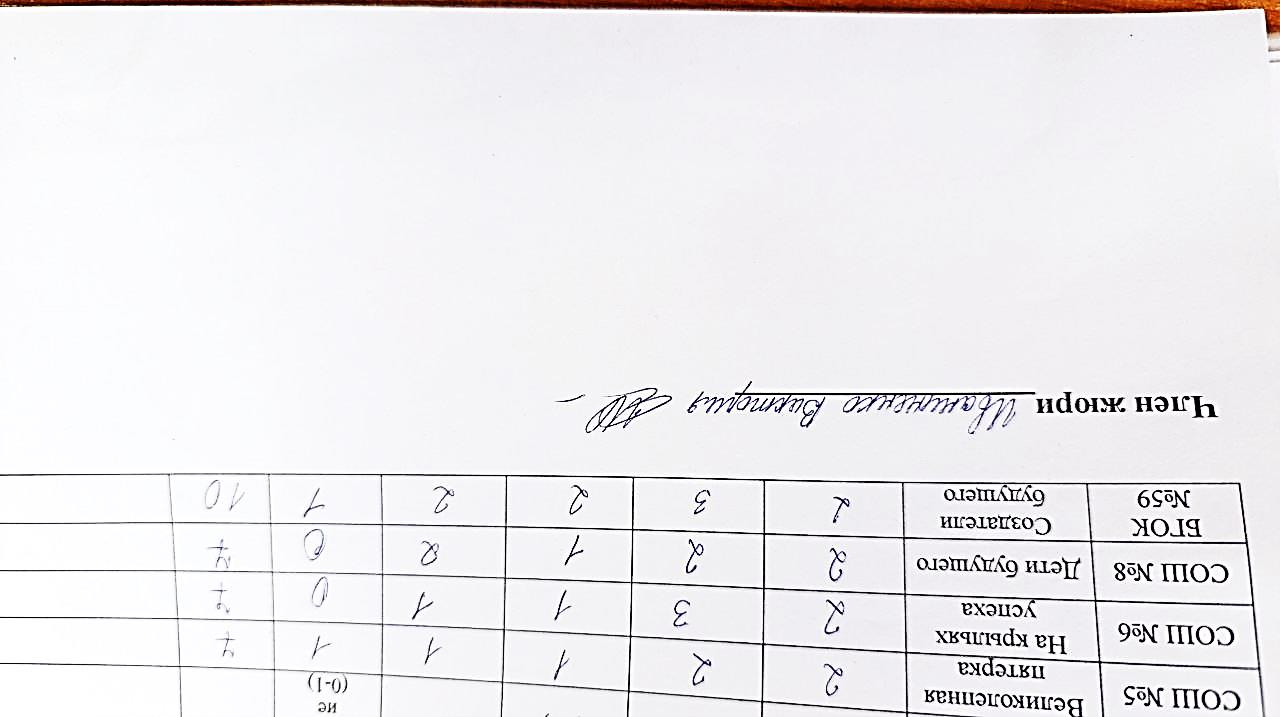 ие
(0-1)
СОШ №5 Великолепная пятерка 2 2 1 1 1 7
СОШ №6 На крыльях успеха 2 3 1 1 0 7
СОШ №8 Дети будущего 2 2 1 2 0 7
БГОК №59 Создатели будущего 2 3 2 2 1 10
Член жюри Иванченко Виктория